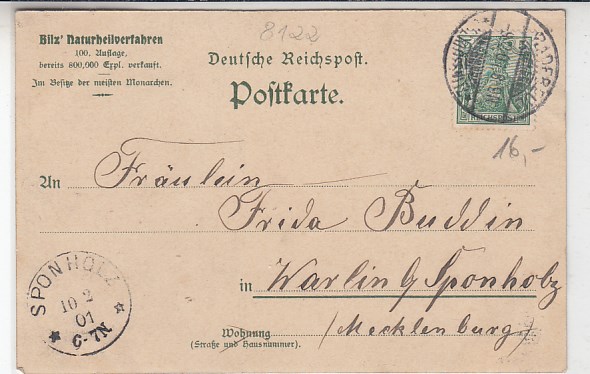 8122
Bilz' Naturheilverfahren
100. Auflage,
bereits 800,000 Expl. verkauft.
Im Besitze der meisten Monarchen.
Deutsche Reichspost.
Postkarte.
16,-
An Fräulein
Frida Buddin
in Warlin b/ Sponholz
/Mecklenburg/
Wohnung
(Straße und Hausnummer).
SPONHOLZ
10 2
01
6-7N.